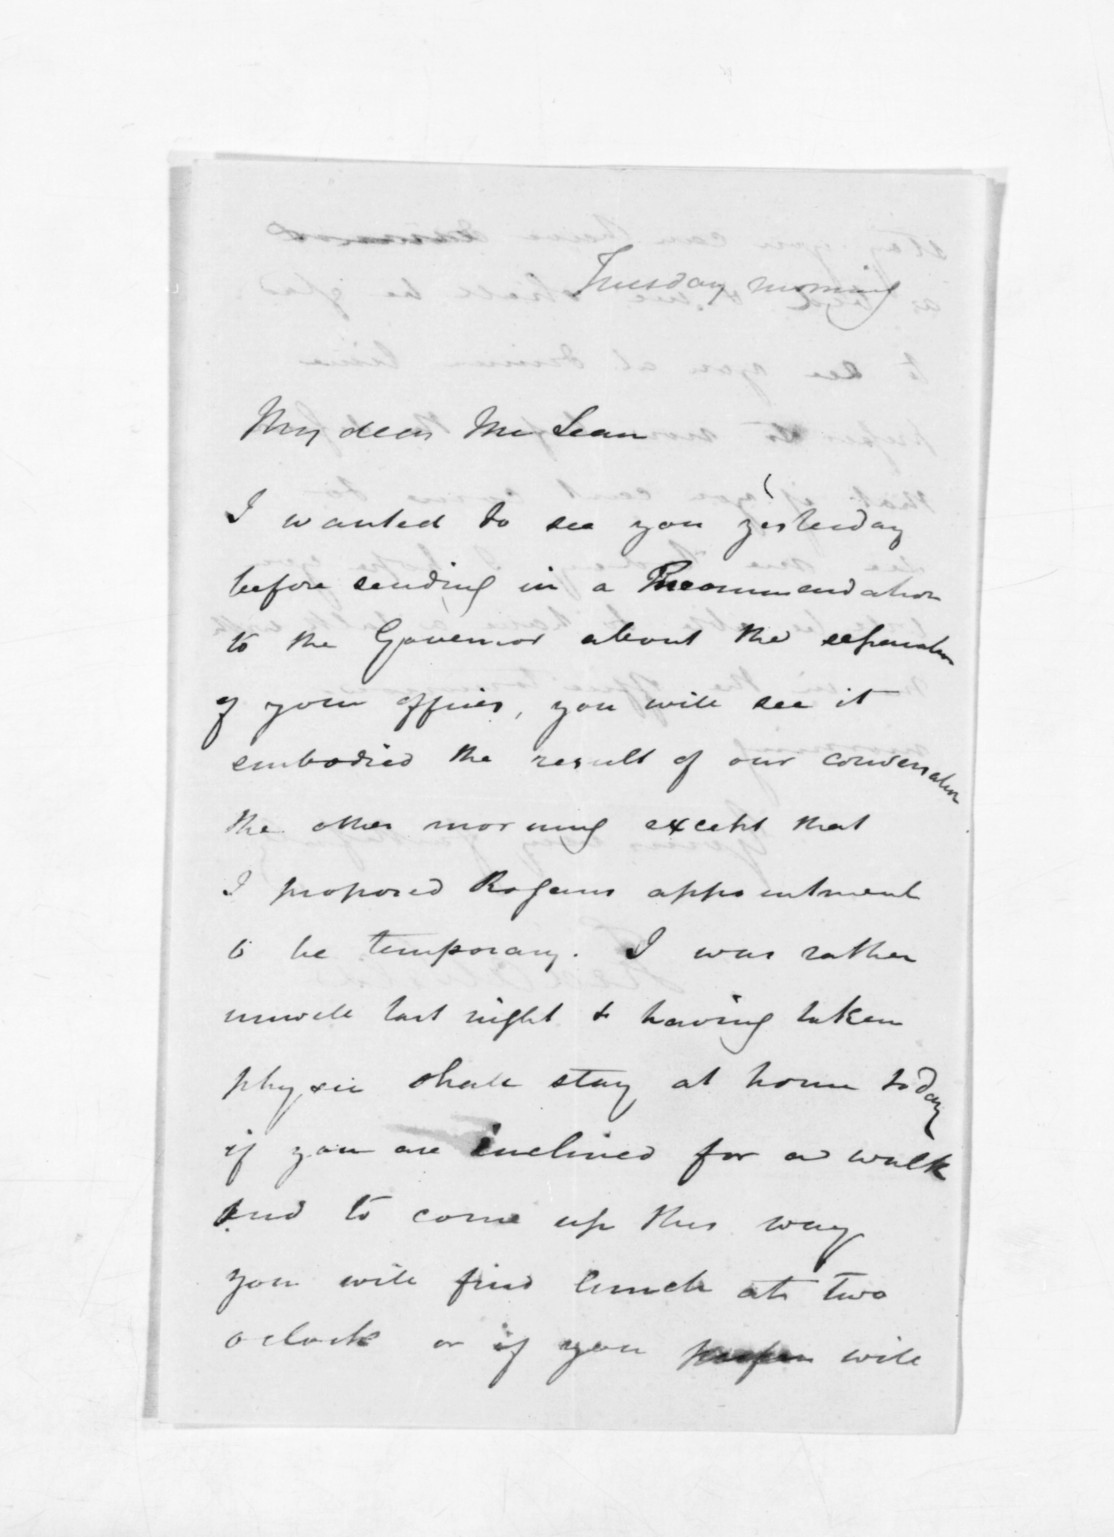 Tuesday morning
My dear McLean
I wanted to see you yesterday
before sending in a Recommendation
to the Governor about the separation
of your offices, you will see it
embodied the result of our conversation
the other morning except that
I proposed Rogans appointment
to be temporary. I was rather
unwell last night & having taken
physic shall stay at home today
if you are inclined for a walk
and to come up this way
you will find lunch at two
oclock or if you will